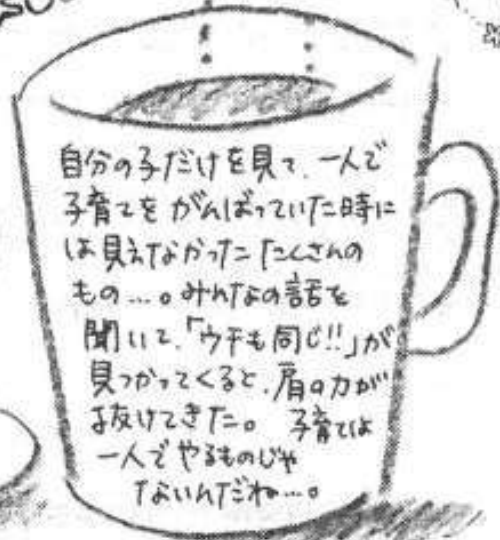 自分の子だけを見て、一人で
子育てを がんばっていた時に
は見えなかった たくさんの
もの…。みんなの話を
聞いて、「ウチも同じ!!」が
見つかってくると、肩の力が
抜けてきた。 子育ては
一人で やるものじゃ
ないんだね…。